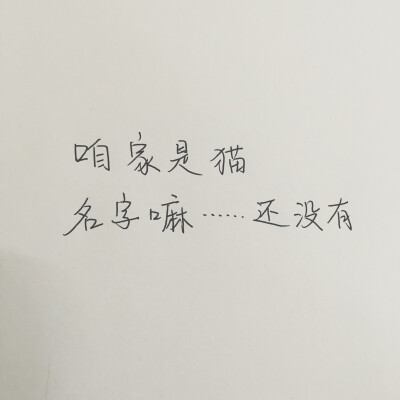 咱家是猫
名字嘛……还没有